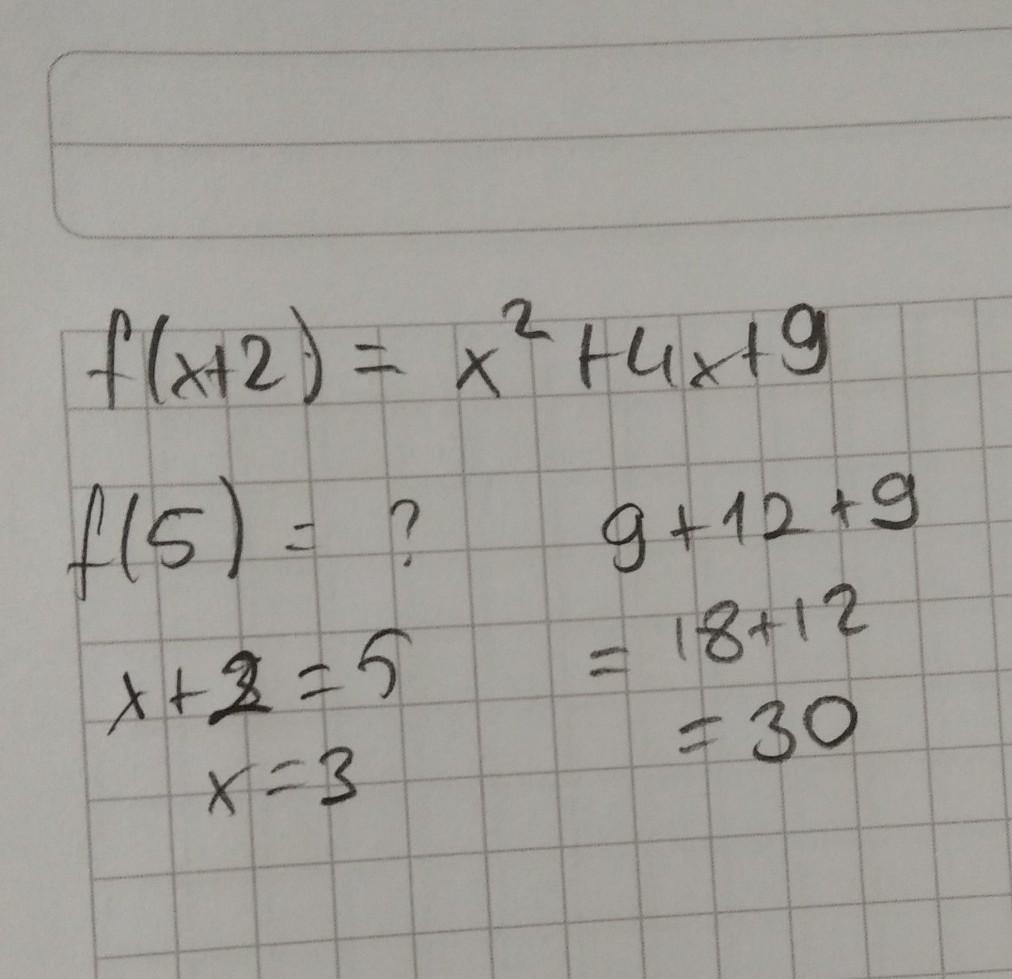 f(x+2) = x² + 4x + 9
f(5) = ?
x + 2 = 5
x = 3
9 + 12 + 9
= 18 + 12
= 30